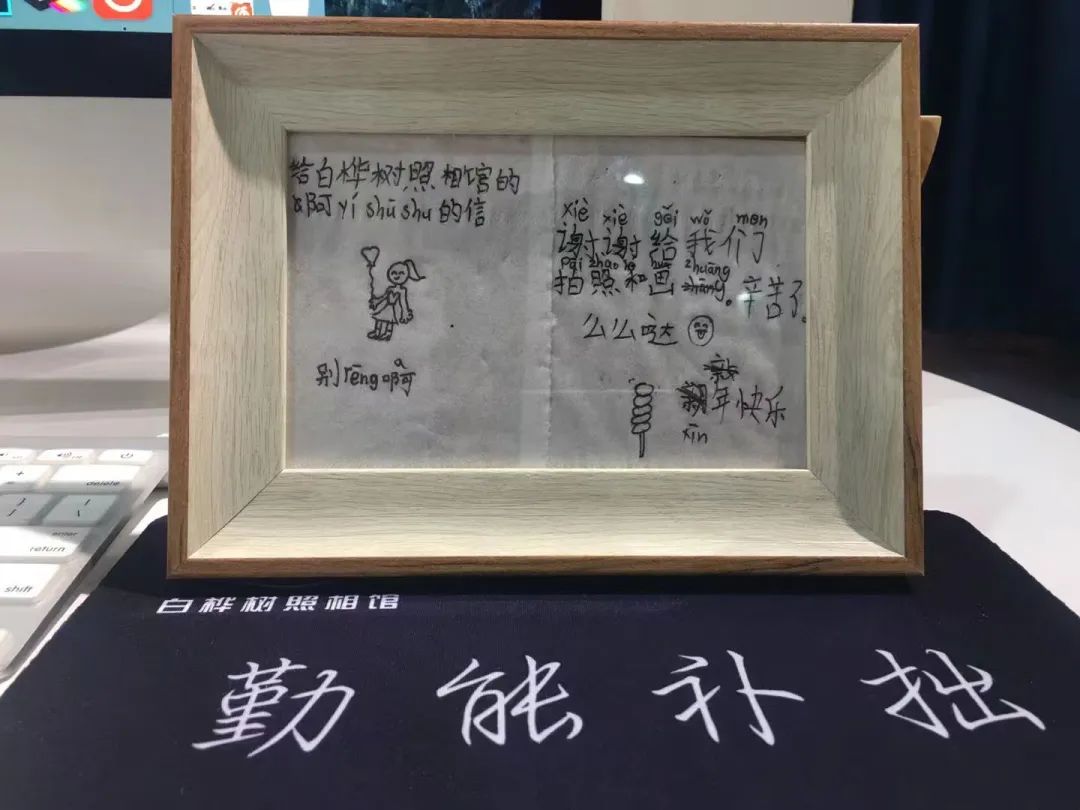 给白桦树照相馆的
阿yí shūshu的信
别rēng啊
à
xiè xiè gěi wǒ men
谢谢给我们
pāi zhào hé huà zhuāng
拍照和画 辛苦了。
么么哒
年快乐
xīn
delete
enter
return
shift
白桦树照相馆
勤能补拙